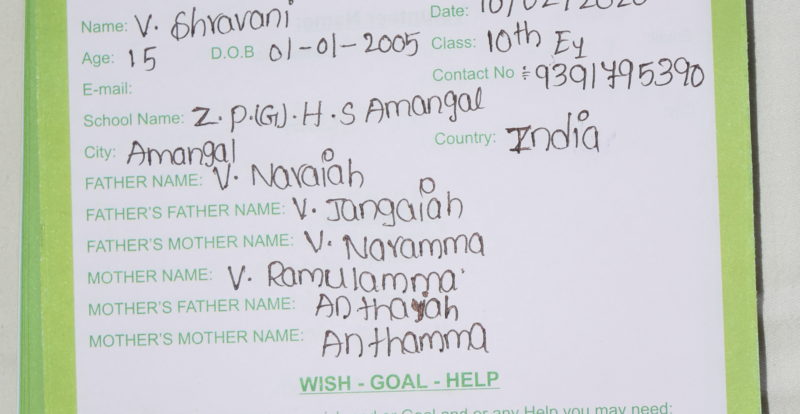 Name: V. Shravani Date: 10/02/2020
Age: 15 D.O.B 01-01-2005 Class: 10th Ey
E-mail: Contact No : 9391795390
School Name: Z. P.(G). H. S Amangal
City: Amangal Country: India
FATHER NAME: V. Naraiah
FATHER'S FATHER NAME: V. Jangaiah
FATHER'S MOTHER NAME: V. Naramma
MOTHER NAME: V. Ramulamma
MOTHER'S FATHER NAME: Anthayah
MOTHER'S MOTHER NAME: Anthamma
WISH - GOAL - HELP
Goal and or any Help you may need: